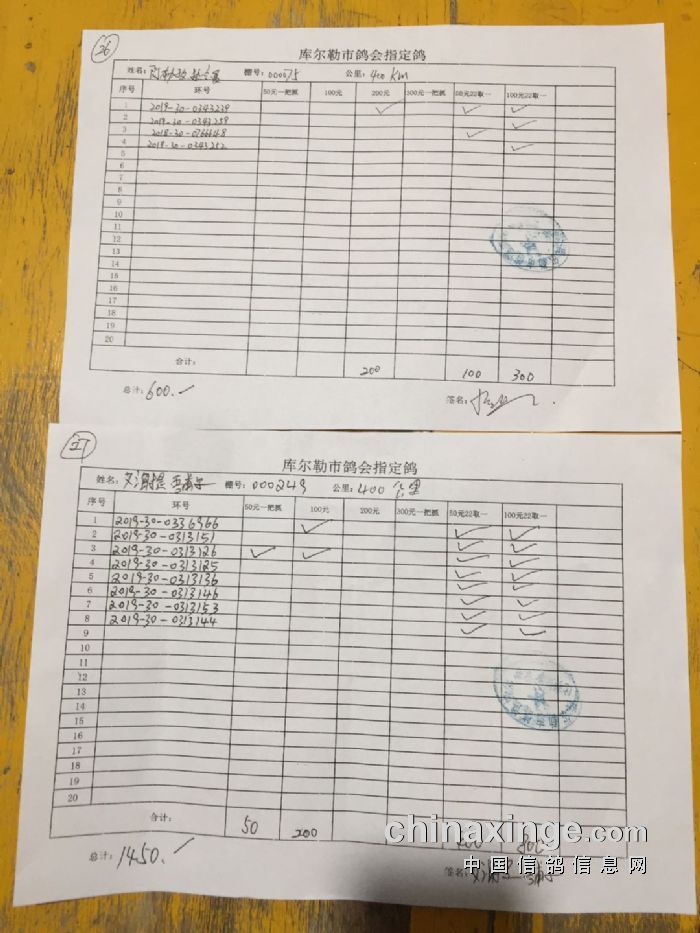 26
库尔勒市鸽会指定鸽
姓名: 棚号:000075 公里:400 Km
序号 环号 50元一把抓 100元 200元 300元一把抓 50元22取一 100元22取一
1 2019-30-0343239 ✓ ✓ ✓
2 2019-30-0343259 ✓
3 2018-30-0766648 ✓
4 2019-30-0343252 ✓
5
6
7
8
9
10
11
12
13
14
15
16
17
18
19
20
合计: 200 100 300
总计:600.—
签名:
27
库尔勒市鸽会指定鸽
姓名: 棚号:000249 公里:400公里
序号 环号 50元一把抓 100元 200元 300元一把抓 50元22取一 100元22取一
1 2019-30-0336966 ✓ ✓ ✓
2 2019-30-0313151 ✓ ✓
3 2019-30-0313126 ✓ ✓ ✓ ✓
4 2019-30-0313125 ✓ ✓
5 2019-30-0313136 ✓ ✓
6 2019-30-0313146 ✓ ✓
7 2019-30-0313153 ✓ ✓
8 2019-30-0313144 ✓ ✓
9
10
11
12
13
14
15
16
17
18
19
20
合计: 50 200 800
总计:1450.—
签名:
chinaxinge.com
中国信鸽信息网